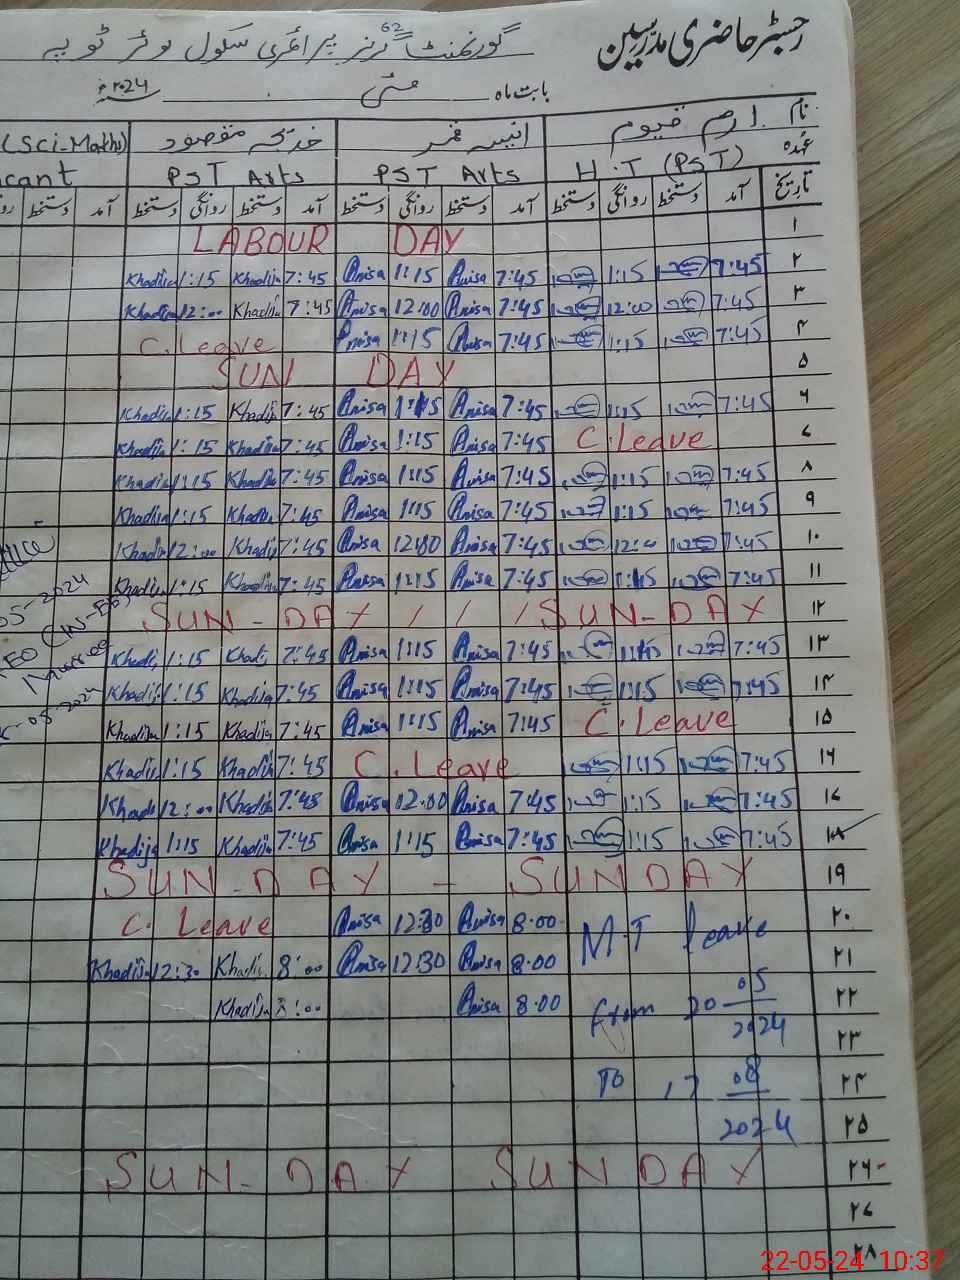 رجسٹر حاضری مدرسین
گورنمنٹ گرلز پرائمری سکول
62
بابت ماہ مئی ۲۰۲۴ء
نام ارم قیوم انیسہ قمر خدیجہ مقصود (Sci-Math)
عہدہ H.T (PST) PST Arts PST Arts cant
تاریخ آمد دستخط روانگی دستخط آمد دستخط روانگی دستخط آمد دستخط روانگی دستخط آمد دستخط
۱ LABOUR DAY
۲ 7:45 1:15 7:45 Anisa 1:15 Anisa 7:45 Khadija 1:15 Khadija
۳ 7:45 12:00 7:45 Anisa 12:00 Anisa 7:45 Khadija 12:00 Khadija
۴ 7:45 1:15 7:45 Anisa 1:15 Anisa C.Leave
۵ SUN DAY
۶ 7:45 1:15 7:45 Anisa 1:15 Anisa 7:45 Khadija 1:15 Khadija
۷ C.Leave 7:45 Anisa 1:15 Anisa 7:45 Khadija 1:15 Khadija
۸ 7:45 1:15 7:45 Anisa 1:15 Anisa 7:45 Khadija 1:15 Khadija
۹ 7:45 1:15 7:45 Anisa 1:15 Anisa 7:45 Khadija 1:15 Khadija
۱۰ 7:45 12:00 7:45 Anisa 12:00 Anisa 7:45 Khadija 12:00 Khadija
۱۱ 7:45 1:15 7:45 Anisa 1:15 Anisa 7:45 Khadija 1:15 Khadija
۱۲ SUN-DAY / / / SUN-DAY
۱۳ 7:45 1:15 7:45 Anisa 1:15 Anisa 7:45 Khadija 1:15 Khadija
۱۴ 7:45 1:15 7:45 Anisa 1:15 Anisa 7:45 Khadija 1:15 Khadija
۱۵ C.Leave 7:45 Anisa 1:15 Anisa 7:45 Khadija 1:15 Khadija
۱۶ 7:45 1:15 C.Leave 7:45 Khadija 1:15 Khadija
۱۷ 7:45 1:15 7:45 Anisa 12.00 Anisa 7:45 Khadija 12:00 Khadija
۱۸ 7:45 1:15 7:45 Anisa 1:15 Anisa 7:45 Khadija 1:15 Khadija
۱۹ SUN-DAY - SUNDAY
۲۰ M.T leave 8.00 Anisa 12:30 Anisa C. Leave
۲۱ 8.00 Anisa 12:30 Anisa 8:00 Khadija 12:30 Khadija
۲۲ From 20 05 2024 8.00 Anisa 8:00 Khadija
۲۳
۲۴ To 17 08 2024
۲۵
۲۶ SUN-DAY SUNDAY
۲۷
۲۸
05-2024
Murree
05-2024
22-05-24 10:37